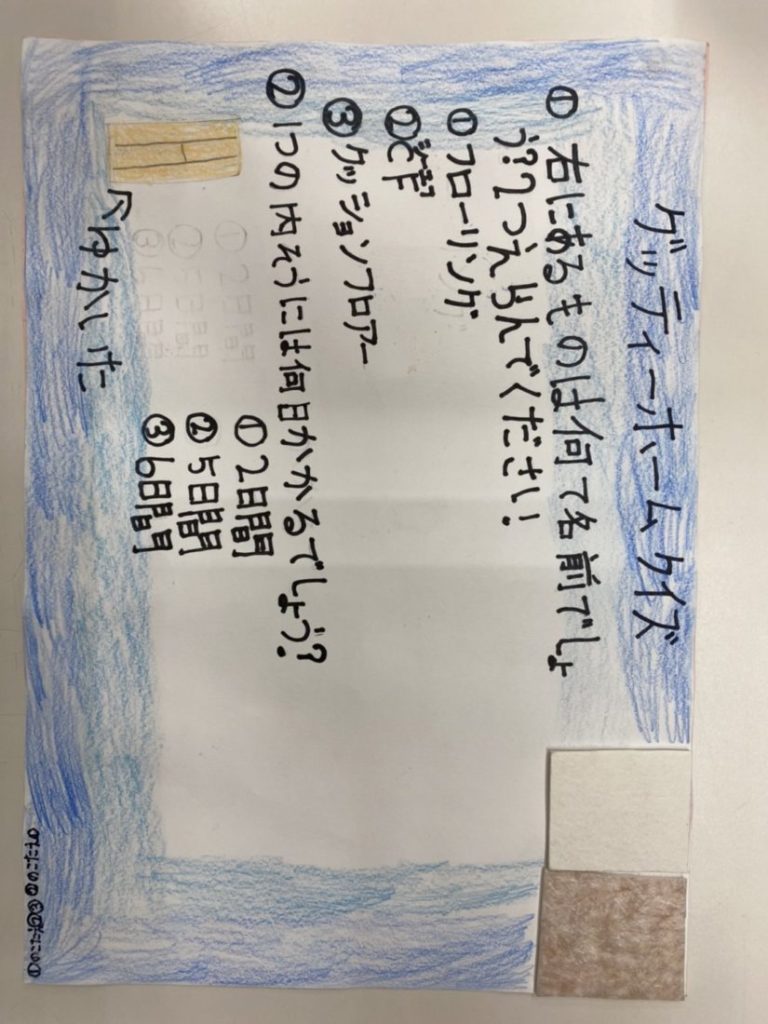 グッティーホームクイズ
① 右にあるものは何て名前でしょ
う?2つえらんでください!
①フローリング
②CF
シーエフ
③クッションフロアー
② 1つの内そうには何日かかるでしょう?
①2日間
②5日間
③6日間
ゆかいた